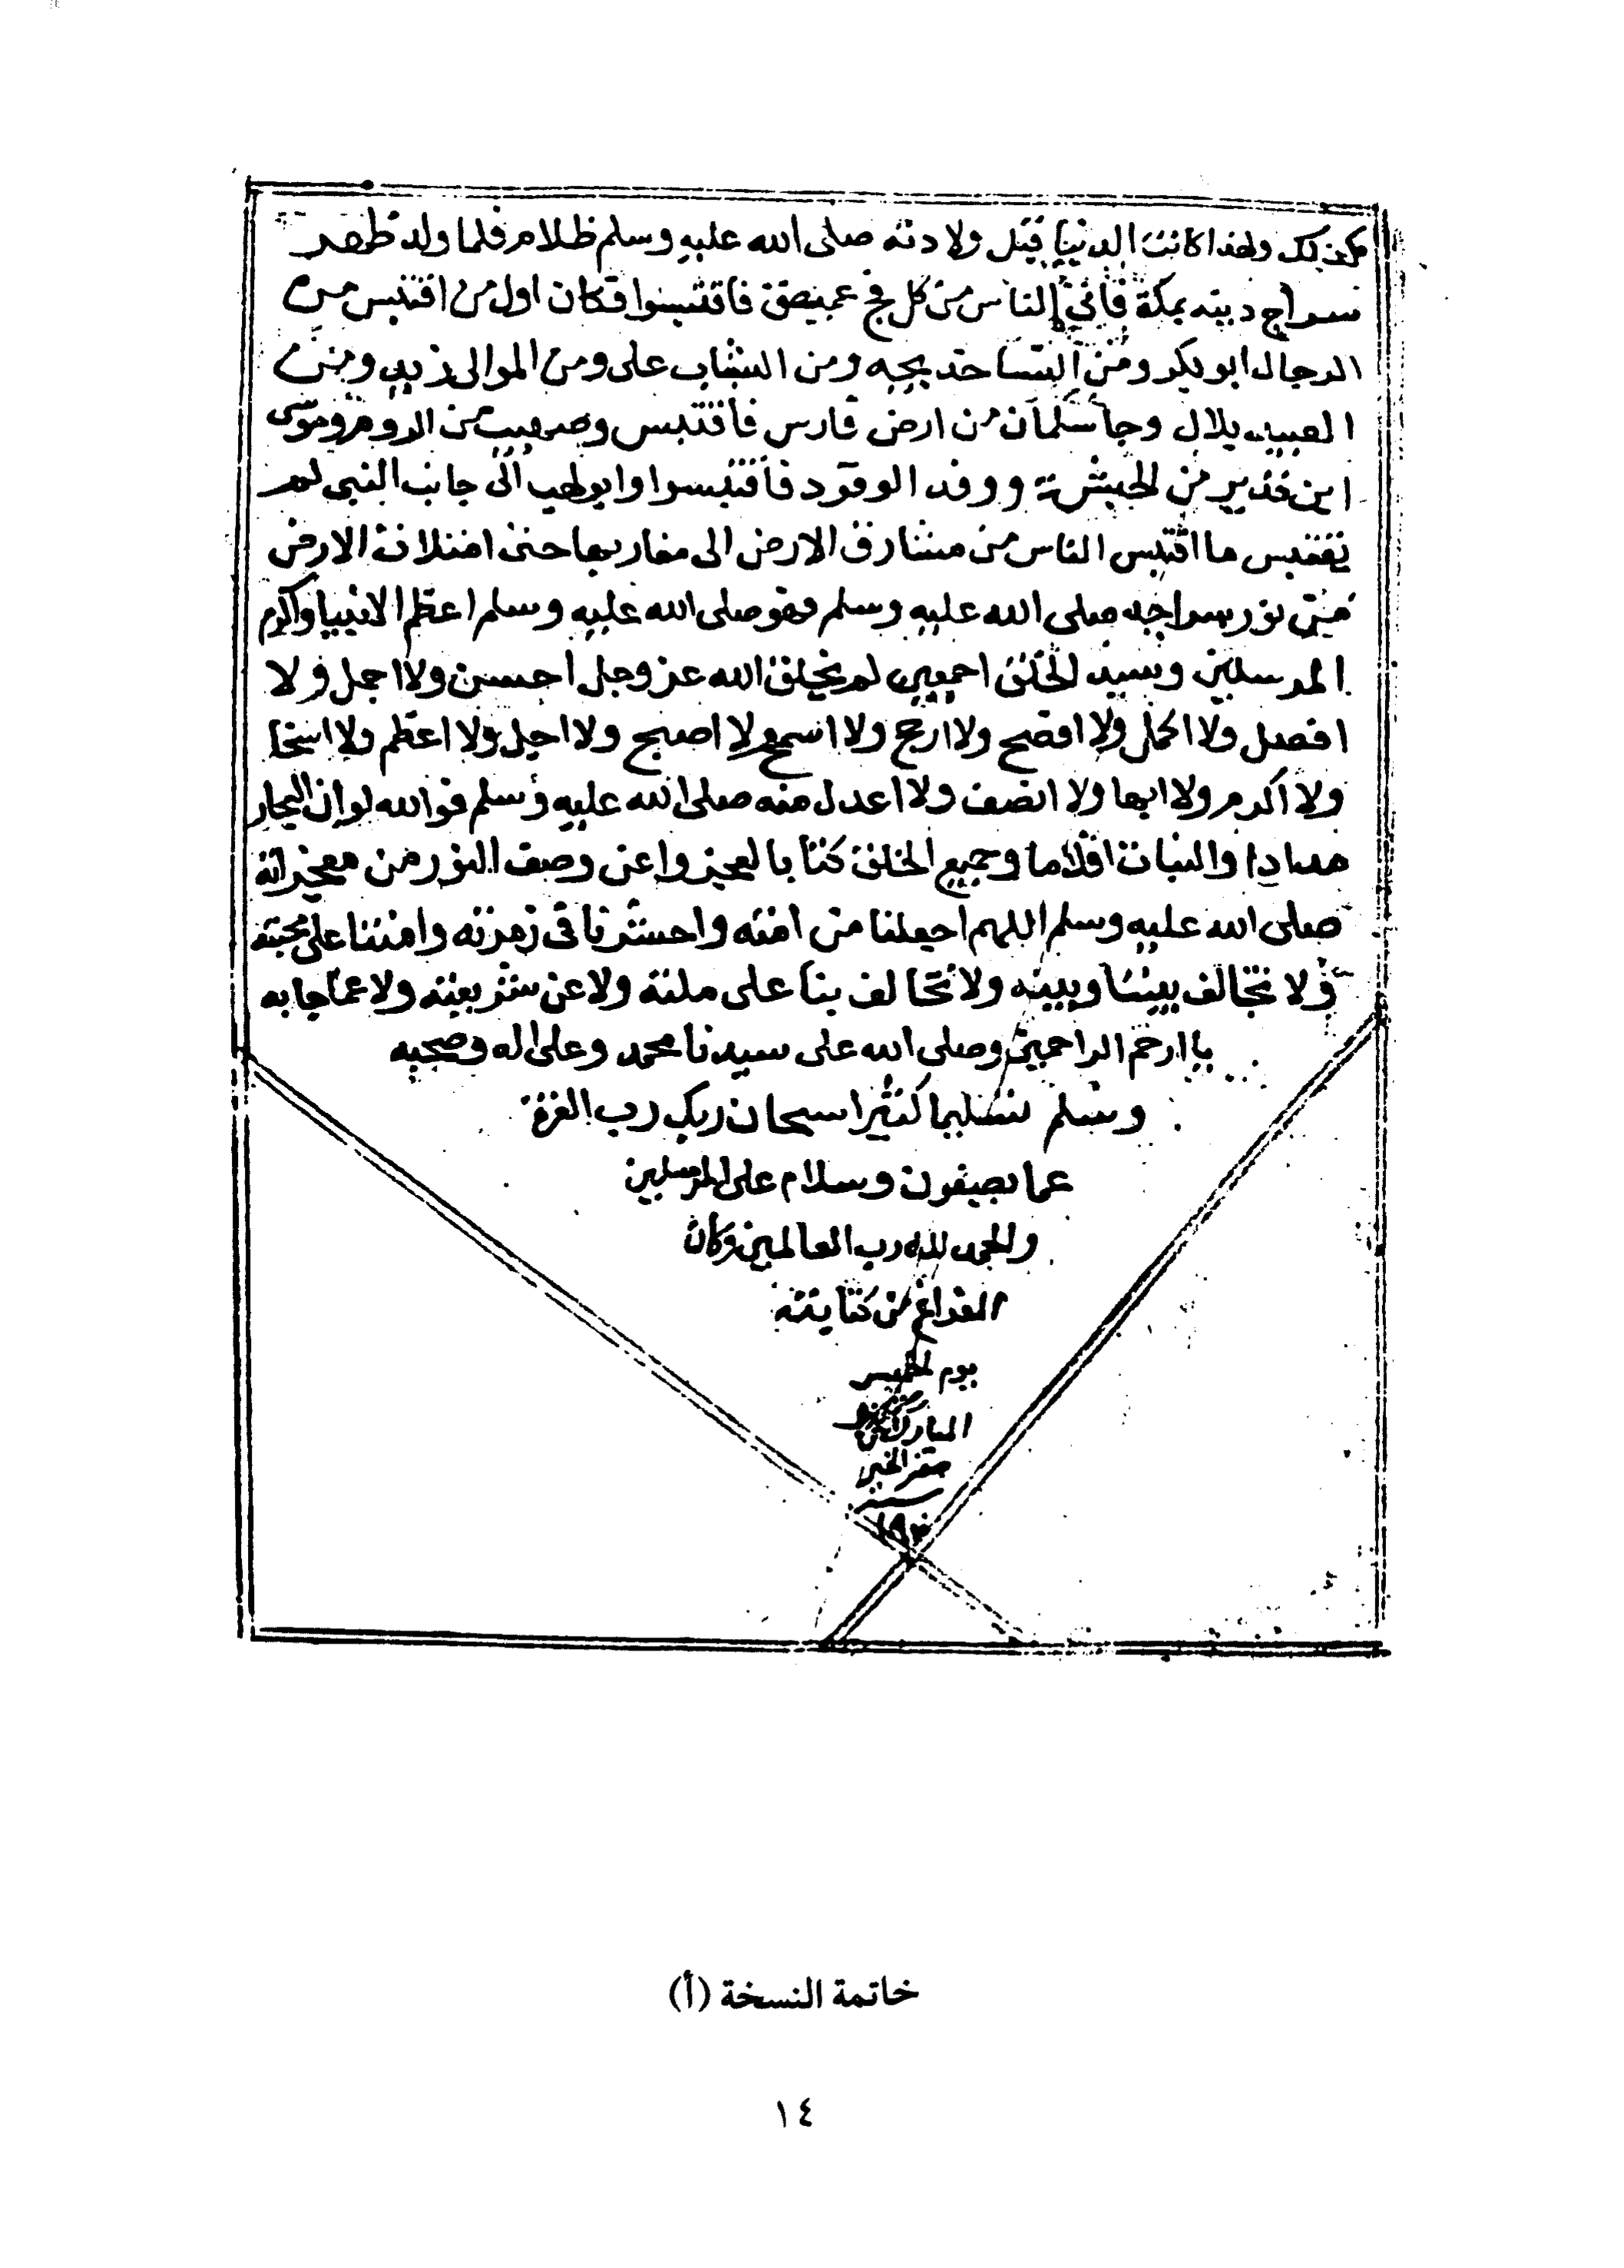 كذلك ولهذا كانت الدنيا قبل ولادته صلى الله عليه وسلم ظلام فلما ولد ظهر
سراج دينه بمكة فاتى الناس من كل فج عميق فاقتبسوا فكان اول من اقتبس من
الرجال ابو بكر ومن النسا خديجه ومن الشباب على ومن الموالى زيد ومن
العبيد بلال وجا سلمان من ارض فارس فاقتبس وصهيب من الروم
ابن من الحبشة ووفد الوفود فاقتبسوا وابو لهب الى جانب النبى لم
يقتبس ما اقتبس الناس من مشارق الارض الى مغاربها حتى امتلات الارض
من نور سراجه صلى الله عليه وسلم فهو صلى الله عليه وسلم اعظم الانبيا واكرم
المرسلين وسيد الخلق اجمعين لم يخلق الله عز وجل احسن ولا اجمل ولا
افضل ولا اكمل ولا افصح ولا ارجح ولا اسمح ولا اصبح ولا اجل ولا اعظم ولا اسخا
ولا اكرم ولا ابها ولا انصف ولا اعدل منه صلى الله عليه وسلم فوالله لو ان البحار
مدادا والنبات اقلاما وجميع الخلق كتابا لعجزوا عن وصف النور من معجزاته
صلى الله عليه وسلم اللهم اجعلنا من امته واحشرنا فى زمرته وامتنا على محبته
ولا تخالف بيننا وبينه ولا تخالف بنا على ملته ولا عن شريعته ولا عما جا به
يا ارحم الراحمين وصلى الله على سيدنا محمد وعلى اله وصحبه
وسلم تسليما كثيرا سبحان ربك رب العزة
عما يصفون وسلام على المرسلين
والحمد لله رب العالمين وكان
الفراغ من كتابته
يوم الخميس
المبارك
صفر الخير
سنة
خاتمة النسخة (أ)
١٤